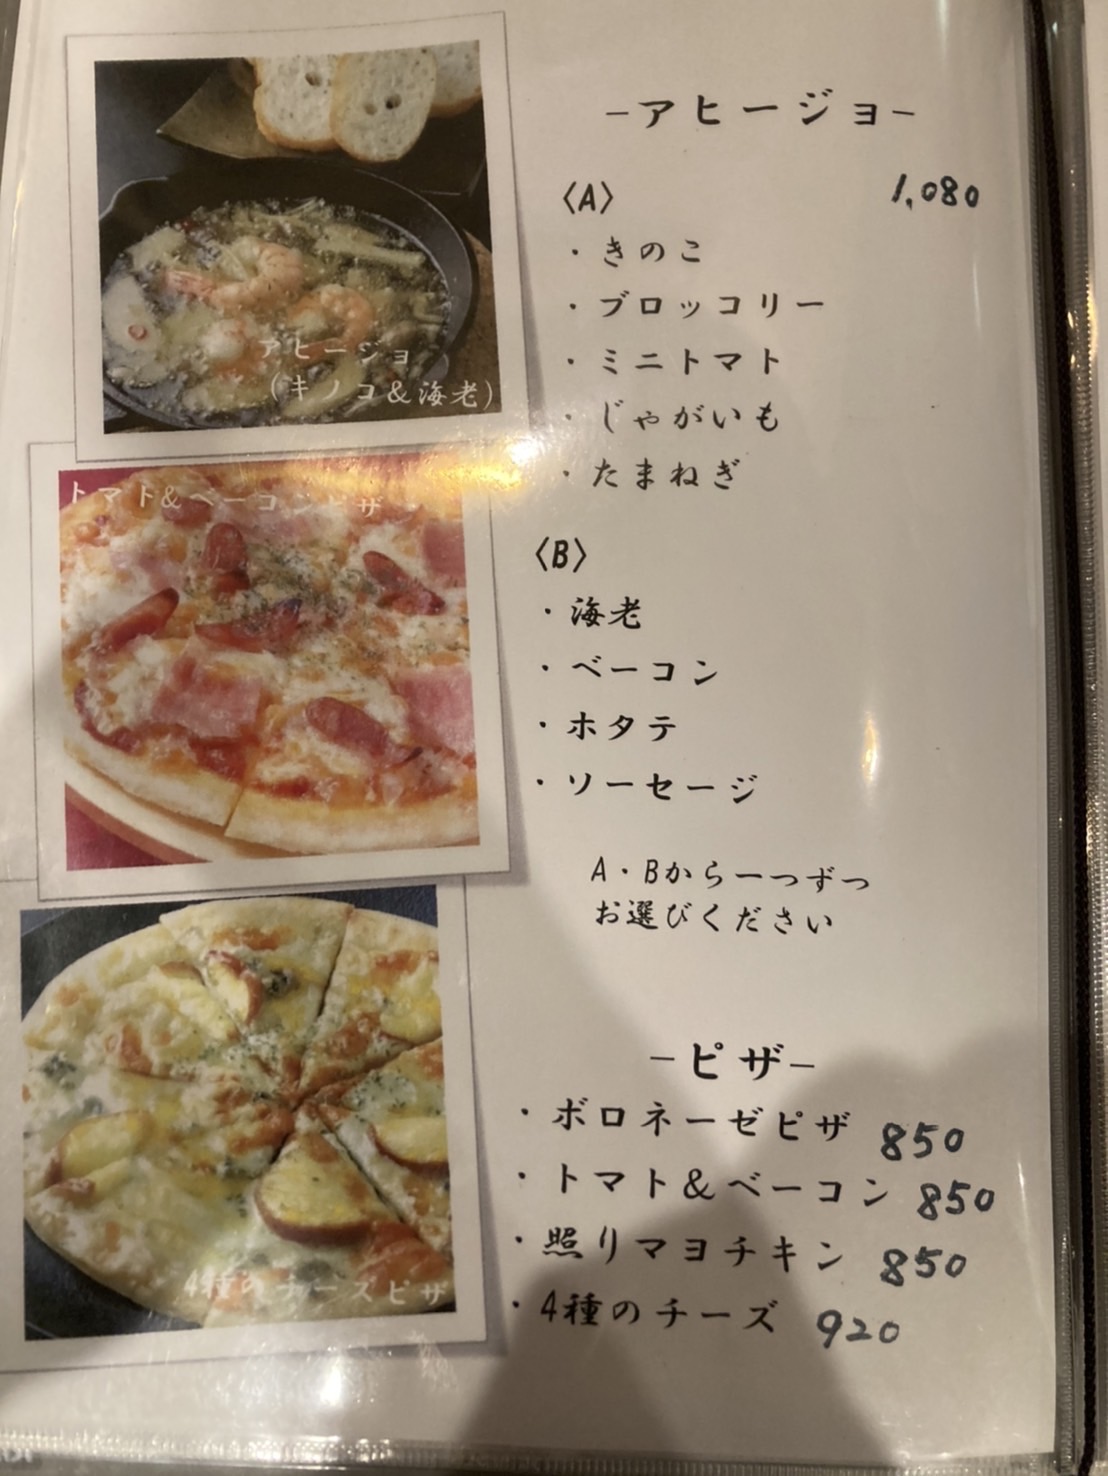 アヒージョ
(キノコ&海老)
トマト&ベーコンピザ
4種のチーズピザ
-アヒージョ-
〈A〉 1,080
・きのこ
・ブロッコリー
・ミニトマト
・じゃがいも
・たまねぎ
〈B〉
・海老
・ベーコン
・ホタテ
・ソーセージ
A・Bから一つずつ
お選びください
-ピザ-
・ボロネーゼピザ 850
・トマト&ベーコン 850
・照りマヨチキン 850
・4種のチーズ 920